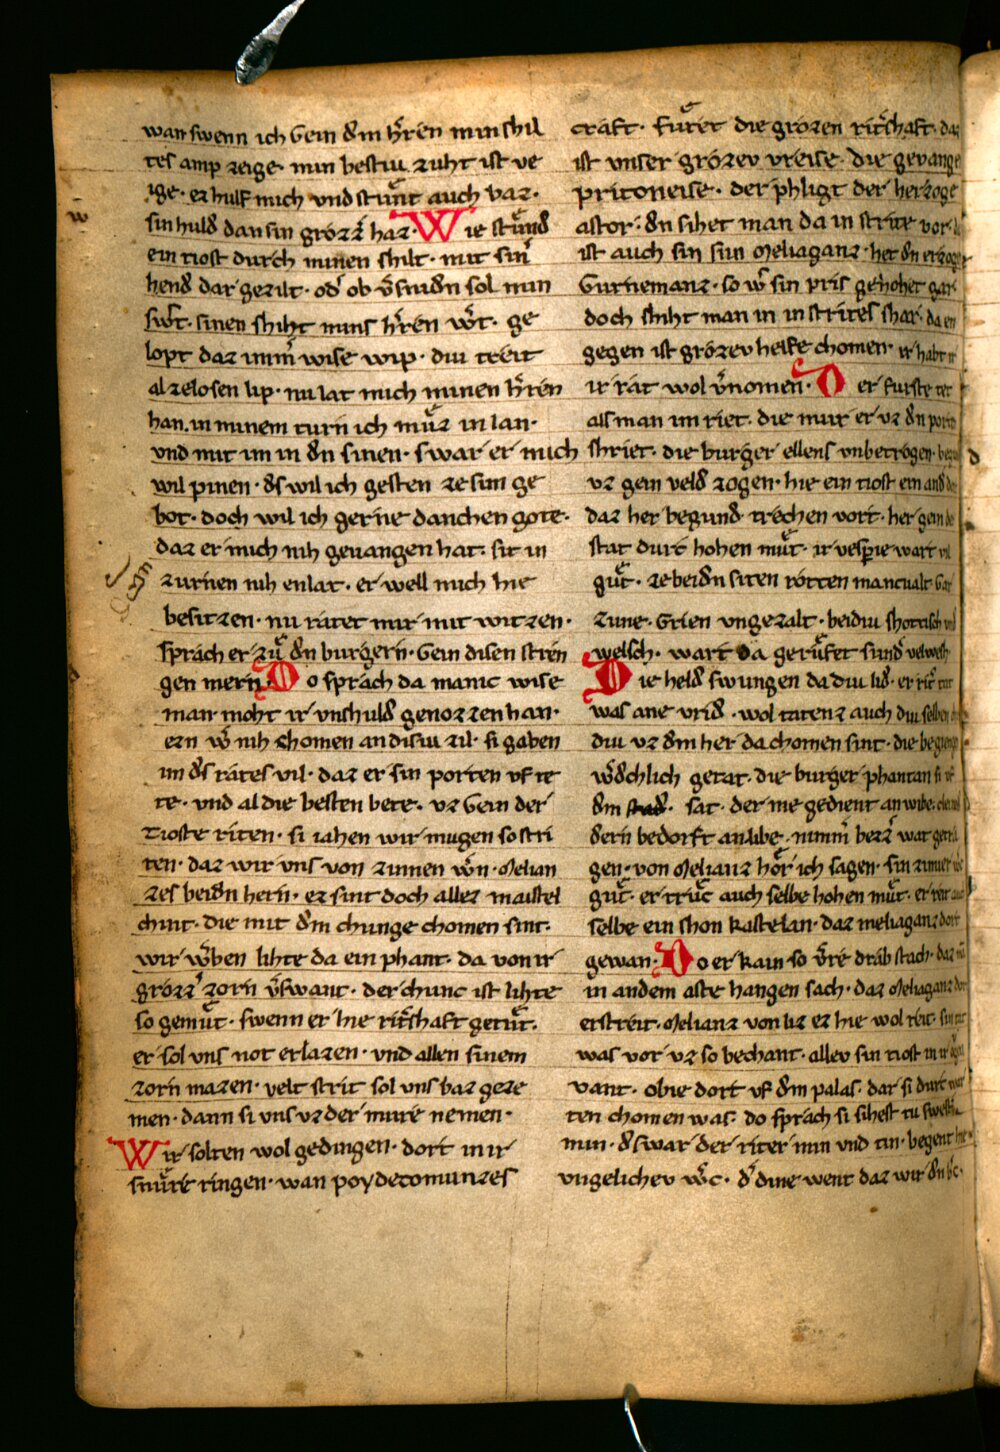 wan swenn ich Gein dem hͤren min shil
tes amp zeige· min bestiu zuht ist ve
ige· ez hulf mich vnd stuͤnt auch baz·
sin huld dan sin grozzͤ haz· Wie stuͤnd
ein tiost durch minen shilt· mit sinͤ
hend dar gezilt· odͤ ob vͤsniden sol min
swͤt· sinen shilt mins hͤren wͤt· ge
lopt daz immͤ wise wip· diu treit
al zelosen lip· nu lat mich minen hͤren
han· in minem turn ich muͤz in lan·
und mit im in den sinen· swar er mich
wil pinen· des wil ich gesten ze sim ge
bot· doch wil ich gerne danchen gote·
daz er mich niht gevangen hat· sit in
zurnen niht enlat· er well mich hie
besitzen· nu ratet mir mit witzen·
sprach er zuͤ den burgern· Gein disen stren
gen mern· Do sprach da manic wise
man moht ir vnshuld genozzen han·
ezn wͤ nih chomen an disiu zil· si gaben
im des rates vil· daz er sin porten vf te
te· vnd al die besten bete· vz Gein der
tioste riten· si iahen wir mugen so stri
ten· daz wir uns von zinnen wͤn· Melian
zes beiden hern· ez sint doch allez maistel
chint· die mit dem chunge chomen sint·
wir wͤben lihte da ein phant· da von ir
grozzͤ zorn vͤswant· der chunc ist lihte
so gemuͤt· swenn er hie ritͤshaft getuͤt·
er sol uns not erlazen· vnd allen sinem
zorn mazen· velt strit sol uns baz geze
men· dann si uns vz der mure nemen·
Wir solten wol gedingen· dort in ir
snuͤre ringen· wan poydecomunzes
craft· fuͤret die grozen ritͤshaft· da
ist unser grozev vreise· die gevange
pritoneise· der phligt der herzoge
astor· den sihet man da in strite vor·
ist auch sin sun Meliaganz· het den erzoge
Gurnemanz· so wͤ sin pris gehohet gar
doch shiht man in in strites shar· da en
gegen ist grozev helfe chomen· ir habt ir
ir rat wol vͤnomen· Der furste tet
als man im riet· die mur er vz den porten
shriet· die burger ellens vnbetrogen·
vz gein veld zogen· hie ein tiost ein
daz her begund trechen vort· her gein
stat durt hohen muͤt· ir vesperie wart vil
guͤt· ze beiden siten rotten manicvalt
zune· Grien vngezalt· beidiu shottisch
welsch· wart da geruͤfet
Die held swungen da diu lid·
was ane vrid· wol taten auch diu selben
diu vz dem her da chomen sint·
wͤdchlich getat· die burger phantan si vf
dem sat· der nie gedient an wibe·
dern bedorft an libe· nimmͤ bezzͤ wat
gen· von Melianz hoͤr ich sagen· sin zimier
guͤt· er truͤc auch selbe hohen muͤt· er reit
selbe ein shon kastelan· daz meliaganz dort
gewan· Do er kain so vͤre drab stach· daz
in andem aste hangen sach· daz Meliaganz dor
erstreit· Melianz von liz ez hie wol reit·
was vor vz so bechant· allev sin tiost in ir
vant· obie dort vf dem palas· dar si durt
ten chomen was· do sprach si sihest tu
min· deswar der riter min vnd tin· begent hie
vngelichev wͤc· dͤ dine went daz wir den